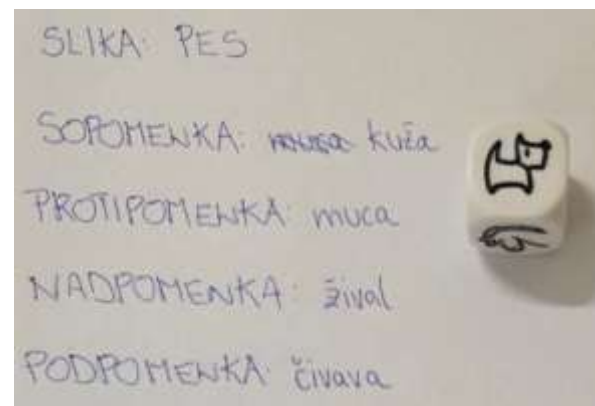 SLIKA: PES
SOPOMENKA: kuža
PROTIPOMENKA: muca
NADPOMENKA: žival
PODPOMENKA: čivava